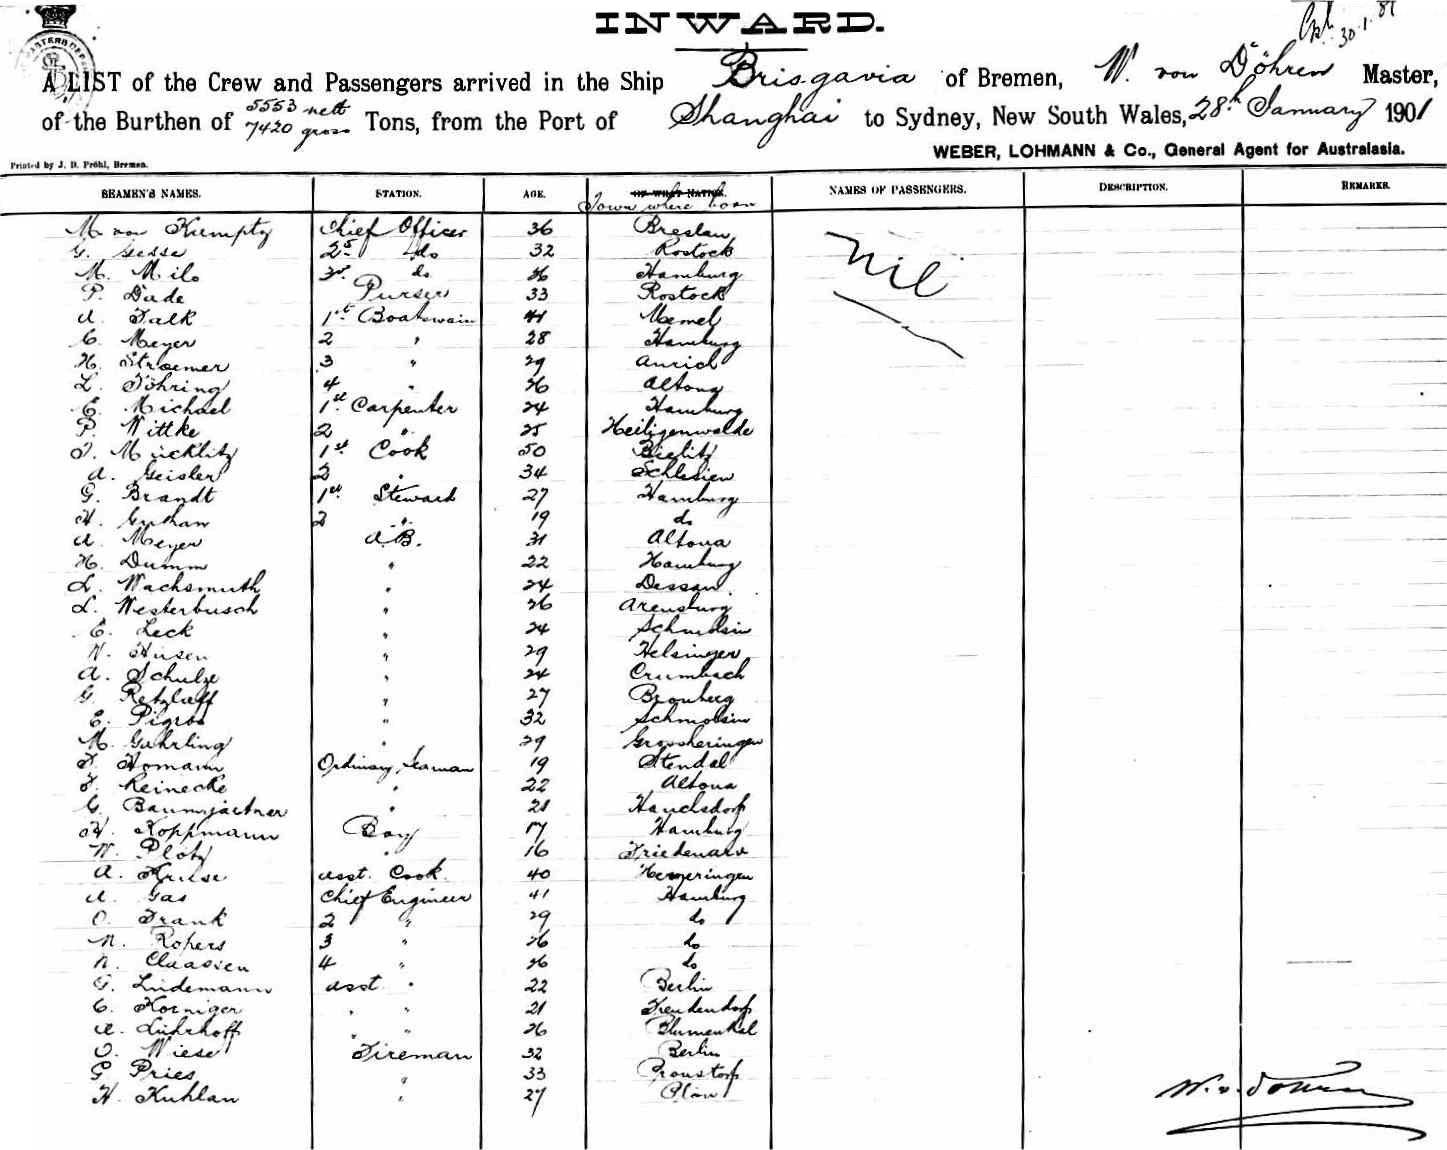 INWARD.
30.1.01
A LIST of the Crew and Passengers arrived in the Ship Brisgavia of Bremen, W. von Döhren Master,
of the Burthen of 5553 nett 7420 gross Tons, from the Port of Shanghai to Sydney, New South Wales, 28th January 1901
WEBER, LOHMANN & Co., General Agent for Australasia.
Printed by J. D. Pröhl, Bremen.
SEAMEN'S NAMES. STATION. AGE. OF WHAT NATION. NAMES OF PASSENGERS. DESCRIPTION. REMARKS.
Town where born
M von Kumpty Chief Officer 36 Breslau Nil
G. Gesse 2d do 32 Rostock
M. Milo 3d do 26 Hamburg
P. Dade Purser 33 Rostock
A. Falk 1st Boatswain 41 Memel
C. Meyer 2 " 28 Hamburg
H. Stroemer 3 " 29 Aurich
L. Döhring 4 " 26 Altona
E. Michael 1st Carpenter 24 Hamburg
P. Wittke 2 " 25 Heiligenwalde
J. Mücklitz 1st Cook 50 Bielitz
A. Geisler 2 " 34 Schlesien
G. Brandt 1st Steward 27 Hamburg
H. 2 " 19 do
A. Meyer A.B. 31 Altona
H. Dumm " 22 Hamburg
L. Wachsmuth " 24 Dessau
L. Westerbusch " 26 Arensburg
E. Leck " 24 Schmolsin
N. " 29 Helsinger
A. Schulze " 24 Crumbach
G. Retzlaff " 27 Bromberg
E. " 32 Schmolsin
M. Gährling " 29 Grossheringen
F. Homann Ordinary Seaman 19 Stendal
F. Reinecke " 22 Altona
G. Baumgartner " 21
H. Koppmann Boy 17 Hamburg
W. Plotz " 16 Friedenau
A. Kruse asst. Cook 40 Hemeringen
A. Gas Chief Engineer 41 Hamburg
O. Frank 2 " 29 do
N. Ropers 3 " 26 do
N. Claassen 4 " 26 do
G. Lindemann asst. " 22 Berlin
C. Korniger " " 21
A. Lührhoff " " 26 Blumenthal
O. Wiese Fireman 32 Berlin
G Pries " 33
H. Kuhlau " 27 Plön
W. v. Döhren